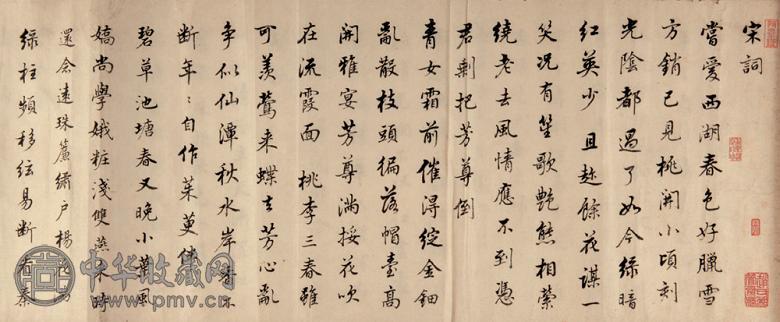 宋詞
嘗愛西湖春色好臘雪
方銷已見桃開小頃刻
光陰都過了如今綠暗
紅英少 且趁餘花謀一
笑況有笙歌艷態相縈
繞老去風情應不到憑
君剩把芳尊倒
青女霜前催得綻金鈿
亂散枝頭徧落帽臺高
開雅宴芳尊滿挼花吹
在流霞面 桃李三春雖
可羨鶯来蝶去芳心亂
争似仙潭秋水岸香不
断年〻自作茱萸伴
碧草池塘春又晚小葉風
嬌尚學娥粧淺雙燕来時
還念遠珠簾繡戶楊花滿
綠柱頻移絃易断看秦
中华收藏网
www.pmv.cn